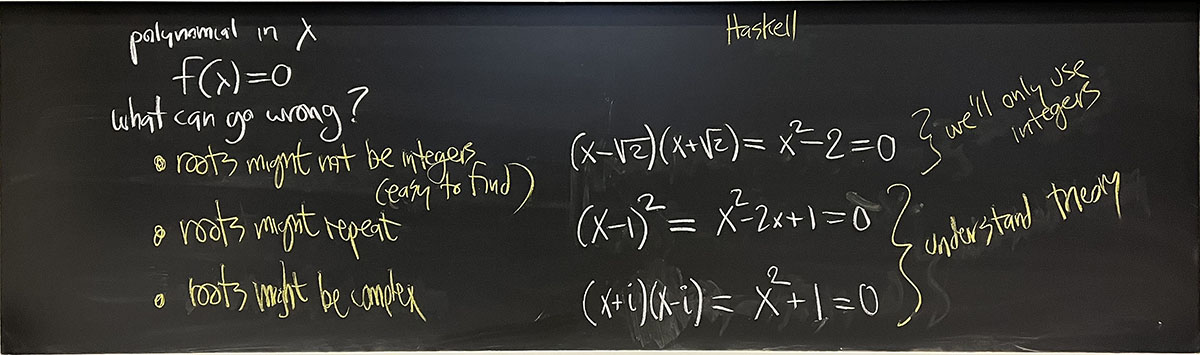 polynomial in λ
f(λ)=0
what can go wrong?
• roots might not be integers
(easy to find)
• roots might repeat
• roots might be complex
Haskell
(x-√2)(x+√2) = x²-2=0
we'll only use
integers
(x-1)² = x²-2x+1=0
(x+i)(x-i) = x²+1=0
understand theory